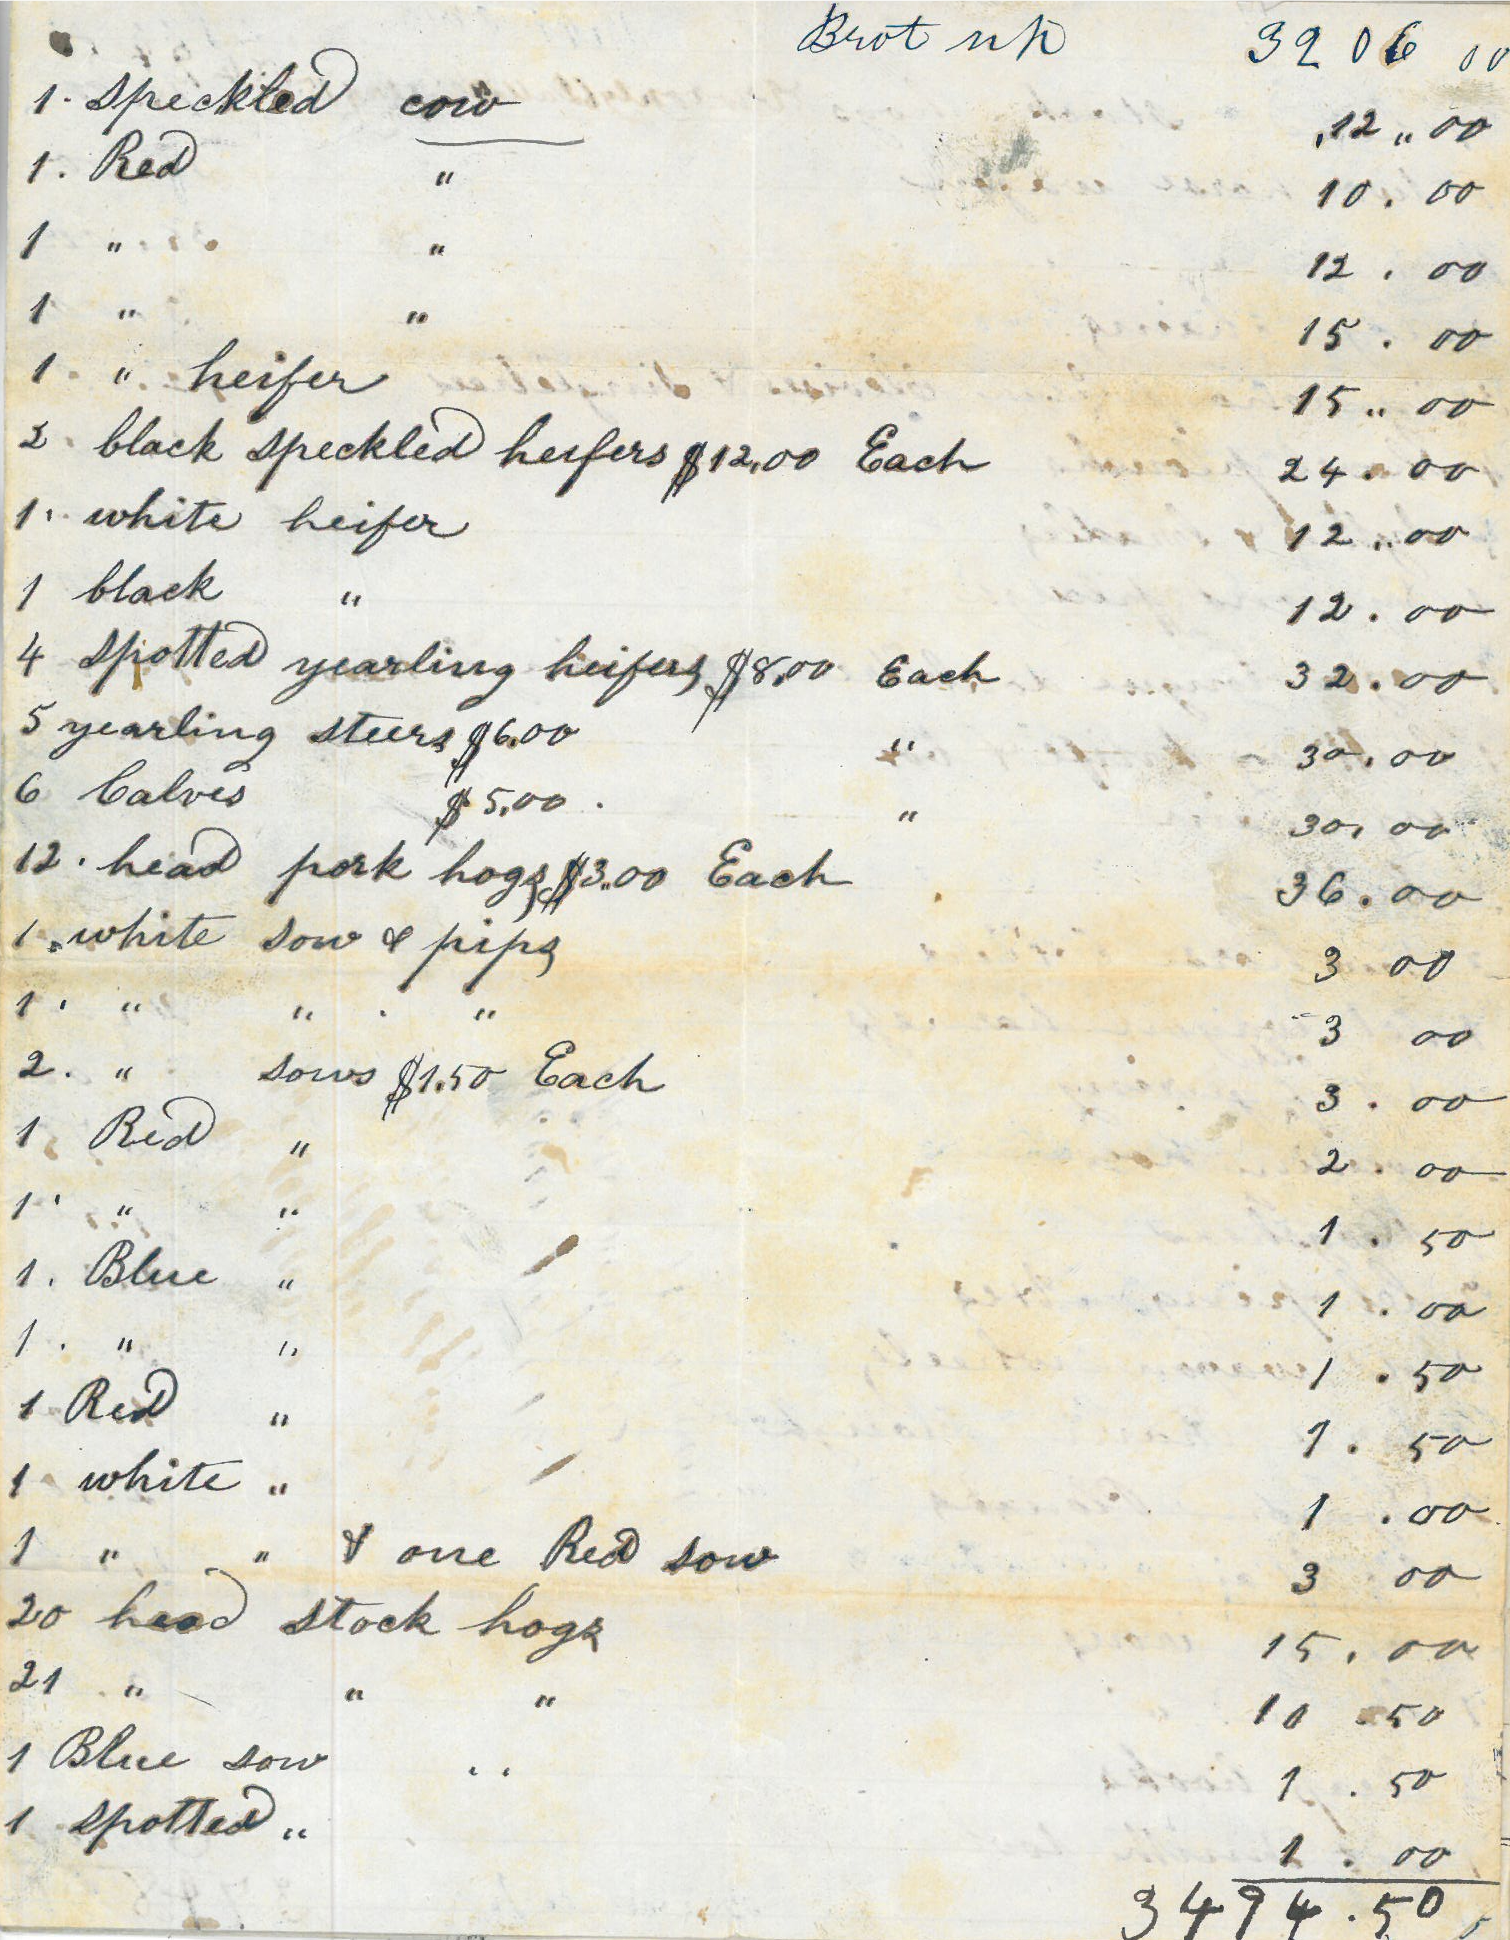 Brot up 3206 00
1. Speckled cow 12.. 00
1. Red " 10. 00
1 " " 12. 00
1 " " 15. 00
1. " heifer 15.. 00
2. black speckled heifers $12.00 Each 24. 00
1. white heifer 12.. 00
1 black " 12. 00
4 Spotted yearling heifers $8.00 Each 32. 00
5 yearling steers $6.00 " 30. 00
6 Calves $5.00 . " 30. 00
12. head pork hogs $3.00 Each 36. 00
1. white sow & pips 3 00
1. " " . " 3 00
2. " sows $1.50 Each 3. 00
1 Red " 2. 00
1. " " 1. 50
1. Blue " 1. 00
1. " " 1. 50
1 Red " 1. 50
1 white " 1. 00
1 " " & one Red sow 3 00
20 head stock hogs 15. 00
21 " " " 10 .50
1 Blue sow .. 1 .50
1 Spotted " 1. 00
3494.50